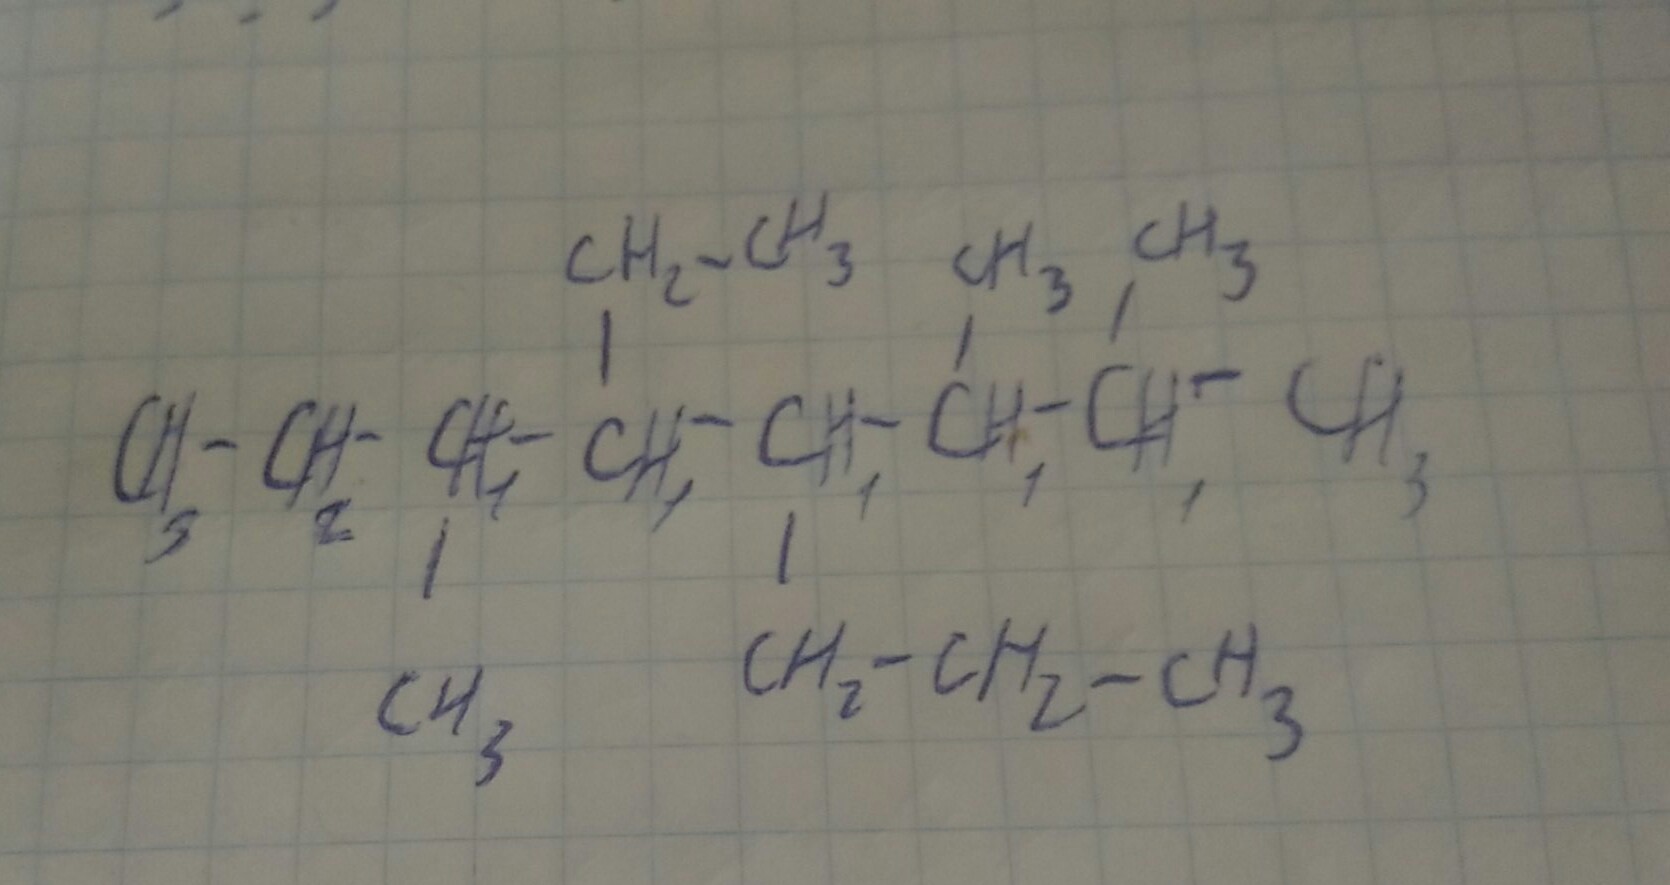 CH2-CH3 CH3 CH3
CH3-CH2-CH1-CH1-CH1-CH1-CH1-CH3
CH3 CH2-CH2-CH3